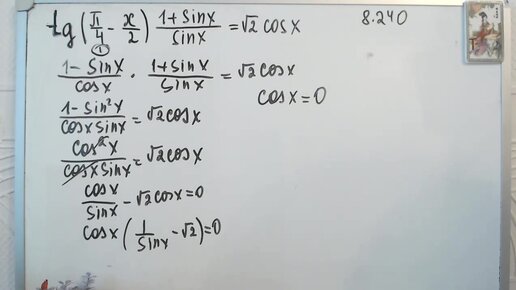 8.240
tg(π/4 - x/2) (1+sinx)/sinx = √2 cosx
①
(1-sinx)/cosx · (1+sinx)/sinx = √2cosx
cosx=0
(1-sin²x)/(cosxsinx) = √2cosx
cos²x/(cosxsinx) = √2cosx
cosx/sinx - √2cosx=0
cosx(1/sinx - √2)=0